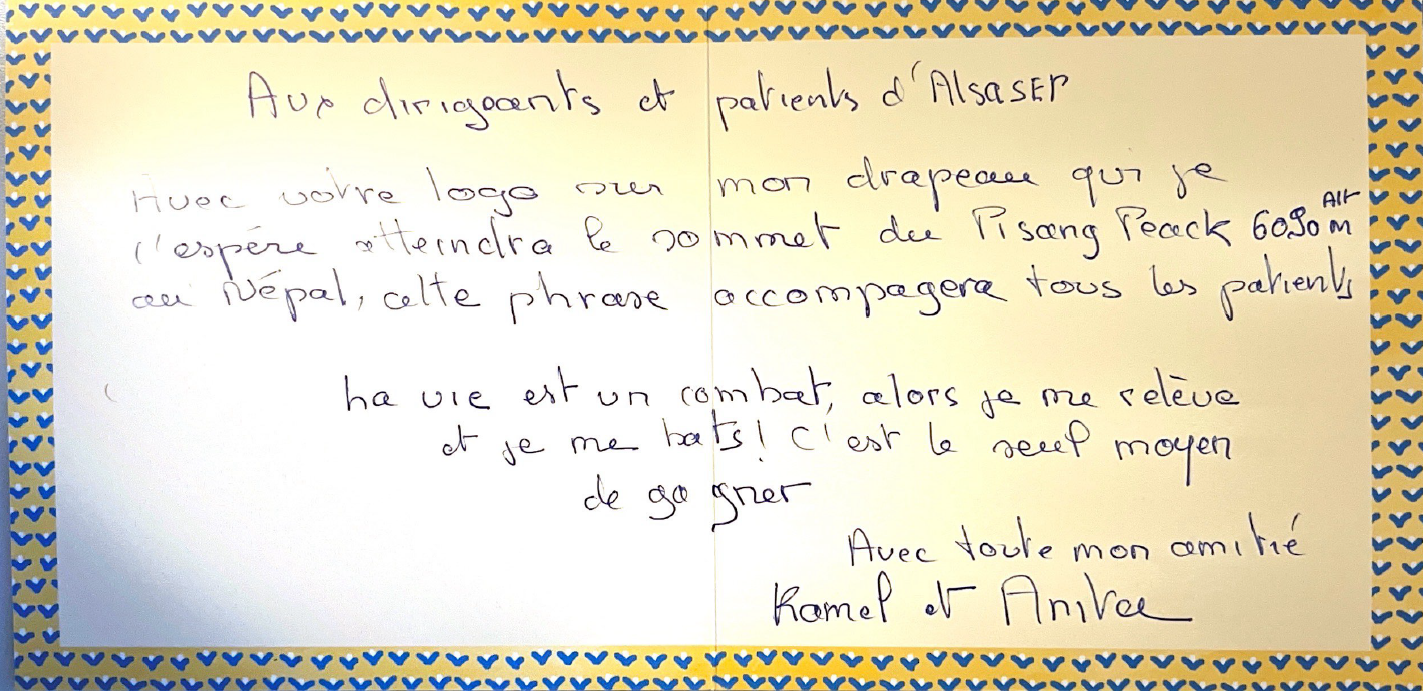 Aux dirigeants et patients d'AlsaSEP
Avec votre logo sur mon drapeau qui je
l'espère atteindra le sommet du Pisang Peack 6090 m Alt
au Népal, cette phrase accompagera tous les patients
La vie est un combat, alors je me relève
et je me bats! C'est le seul moyen
de gagner
Avec toute mon amitié
Kamel et Anita